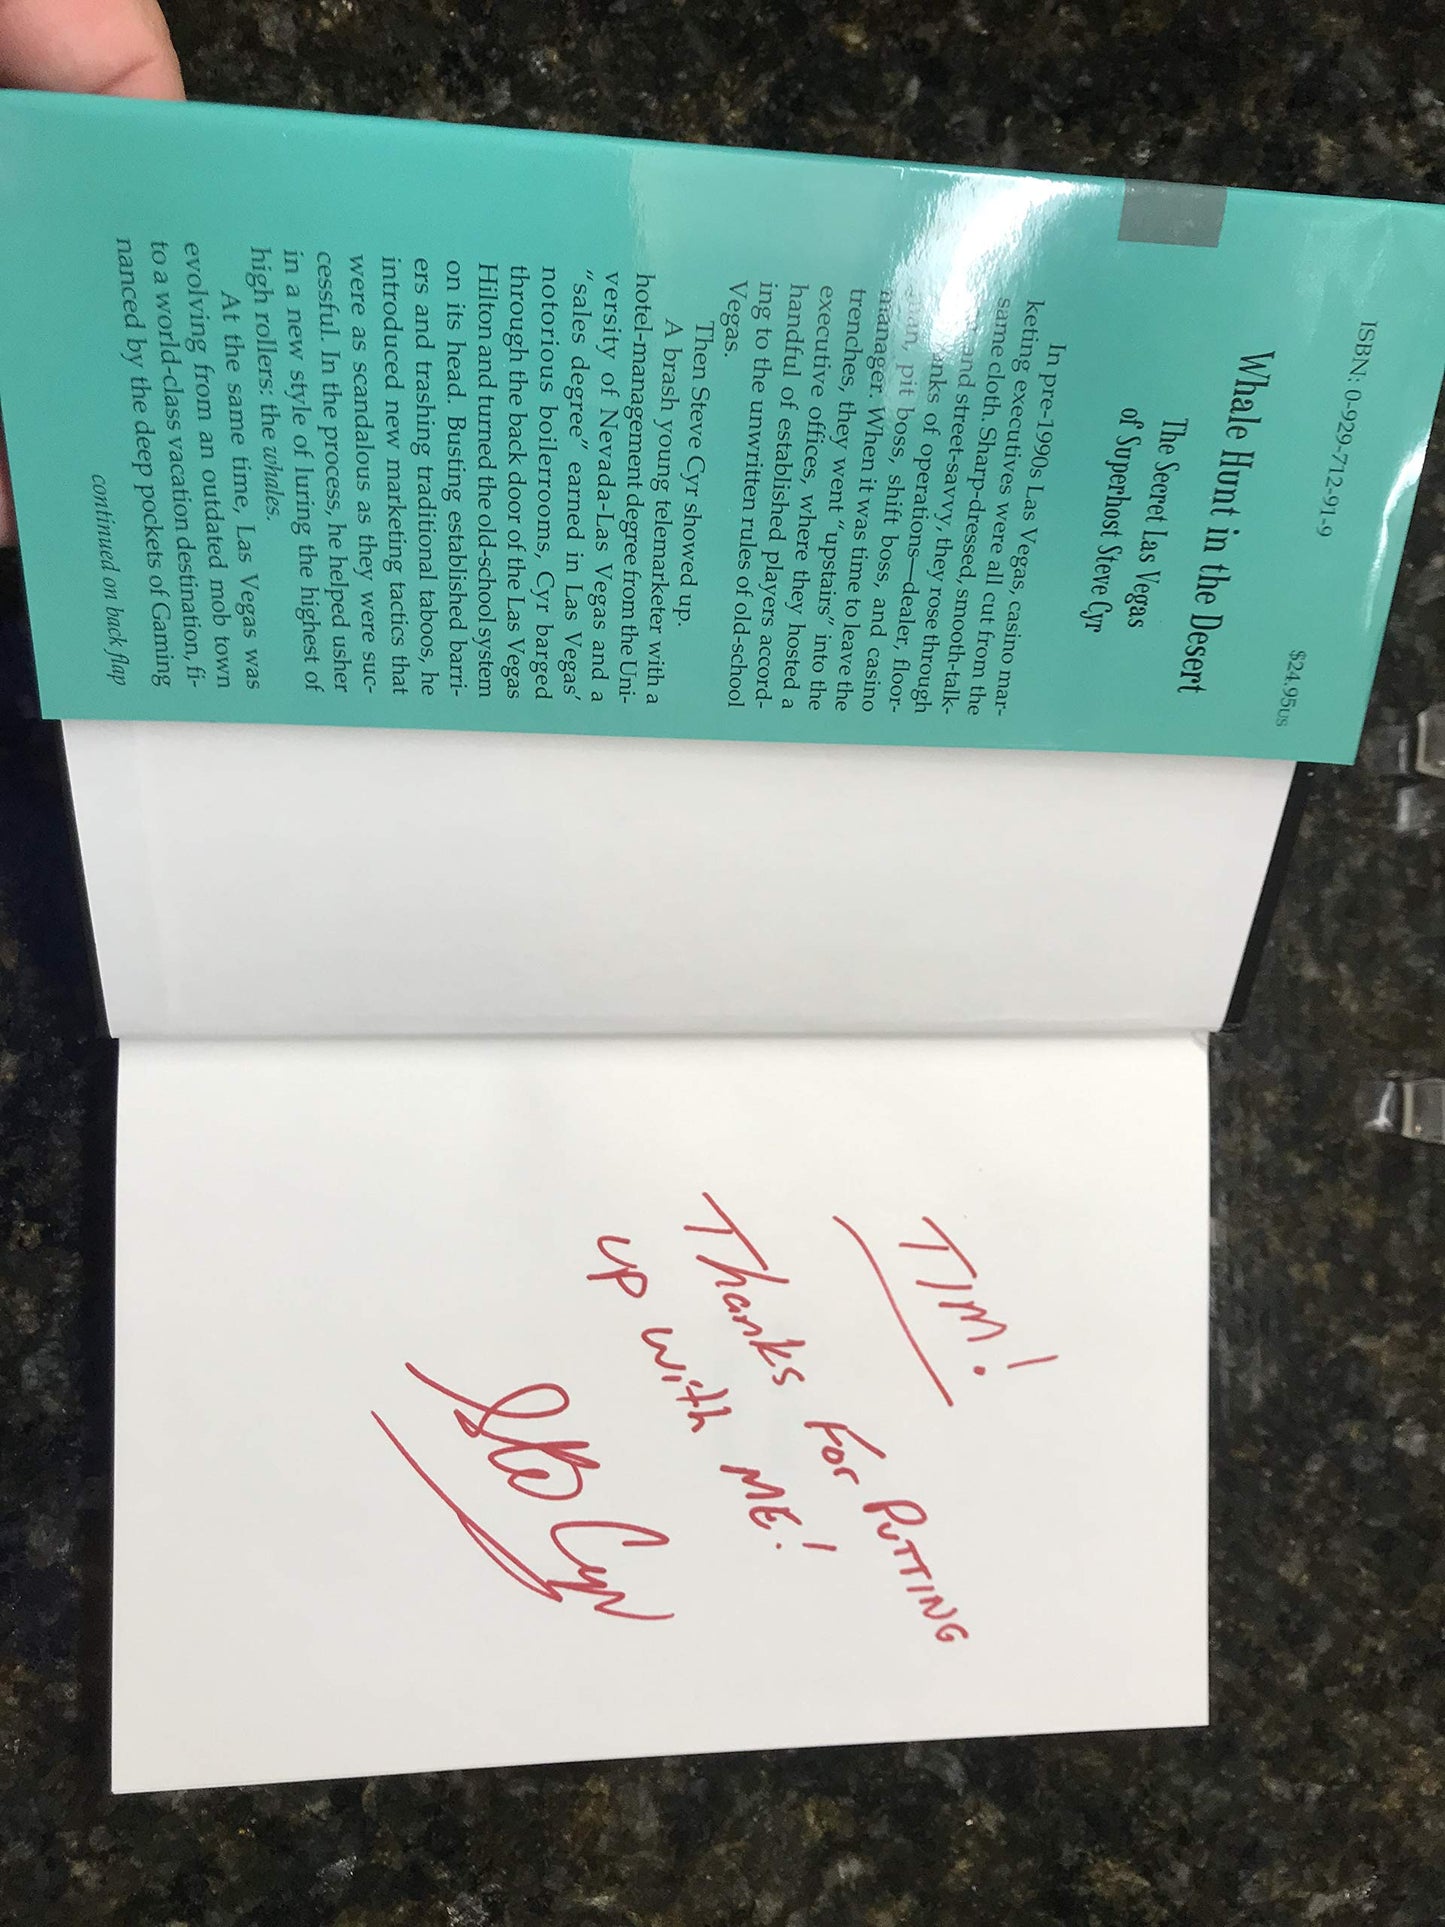 ISBN: 0-929-712-91-9 $24.95US
Whale Hunt in the Desert
The Secret Las Vegas
of Superhost Steve Cyr
In pre-1990s Las Vegas, casino mar-
keting executives were all cut from the
same cloth. Sharp-dressed, smooth-talk-
and street-savvy, they rose through
of operations—dealer, floor-
pit boss, shift boss, and casino
manager. When it was time to leave the
trenches, they went “upstairs” into the
executive offices, where they hosted a
handful of established players accord-
ing to the unwritten rules of old-school
Vegas.
Then Steve Cyr showed up.
A brash young telemarketer with a
hotel-management degree from the Uni-
versity of Nevada-Las Vegas and a
“sales degree” earned in Las Vegas’
notorious boilerrooms, Cyr barged
through the back door of the Las Vegas
Hilton and turned the old-school system
on its head. Busting established barri-
ers and trashing traditional taboos, he
introduced new marketing tactics that
were as scandalous as they were suc-
cessful. In the process, he helped usher
in a new style of luring the highest of
high rollers: the whales.
At the same time, Las Vegas was
evolving from an outdated mob town
to a world-class vacation destination, fi-
nanced by the deep pockets of Gaming
continued on back flap
TIM!
Thanks For PuTTING
up with ME!
Steve Cyr